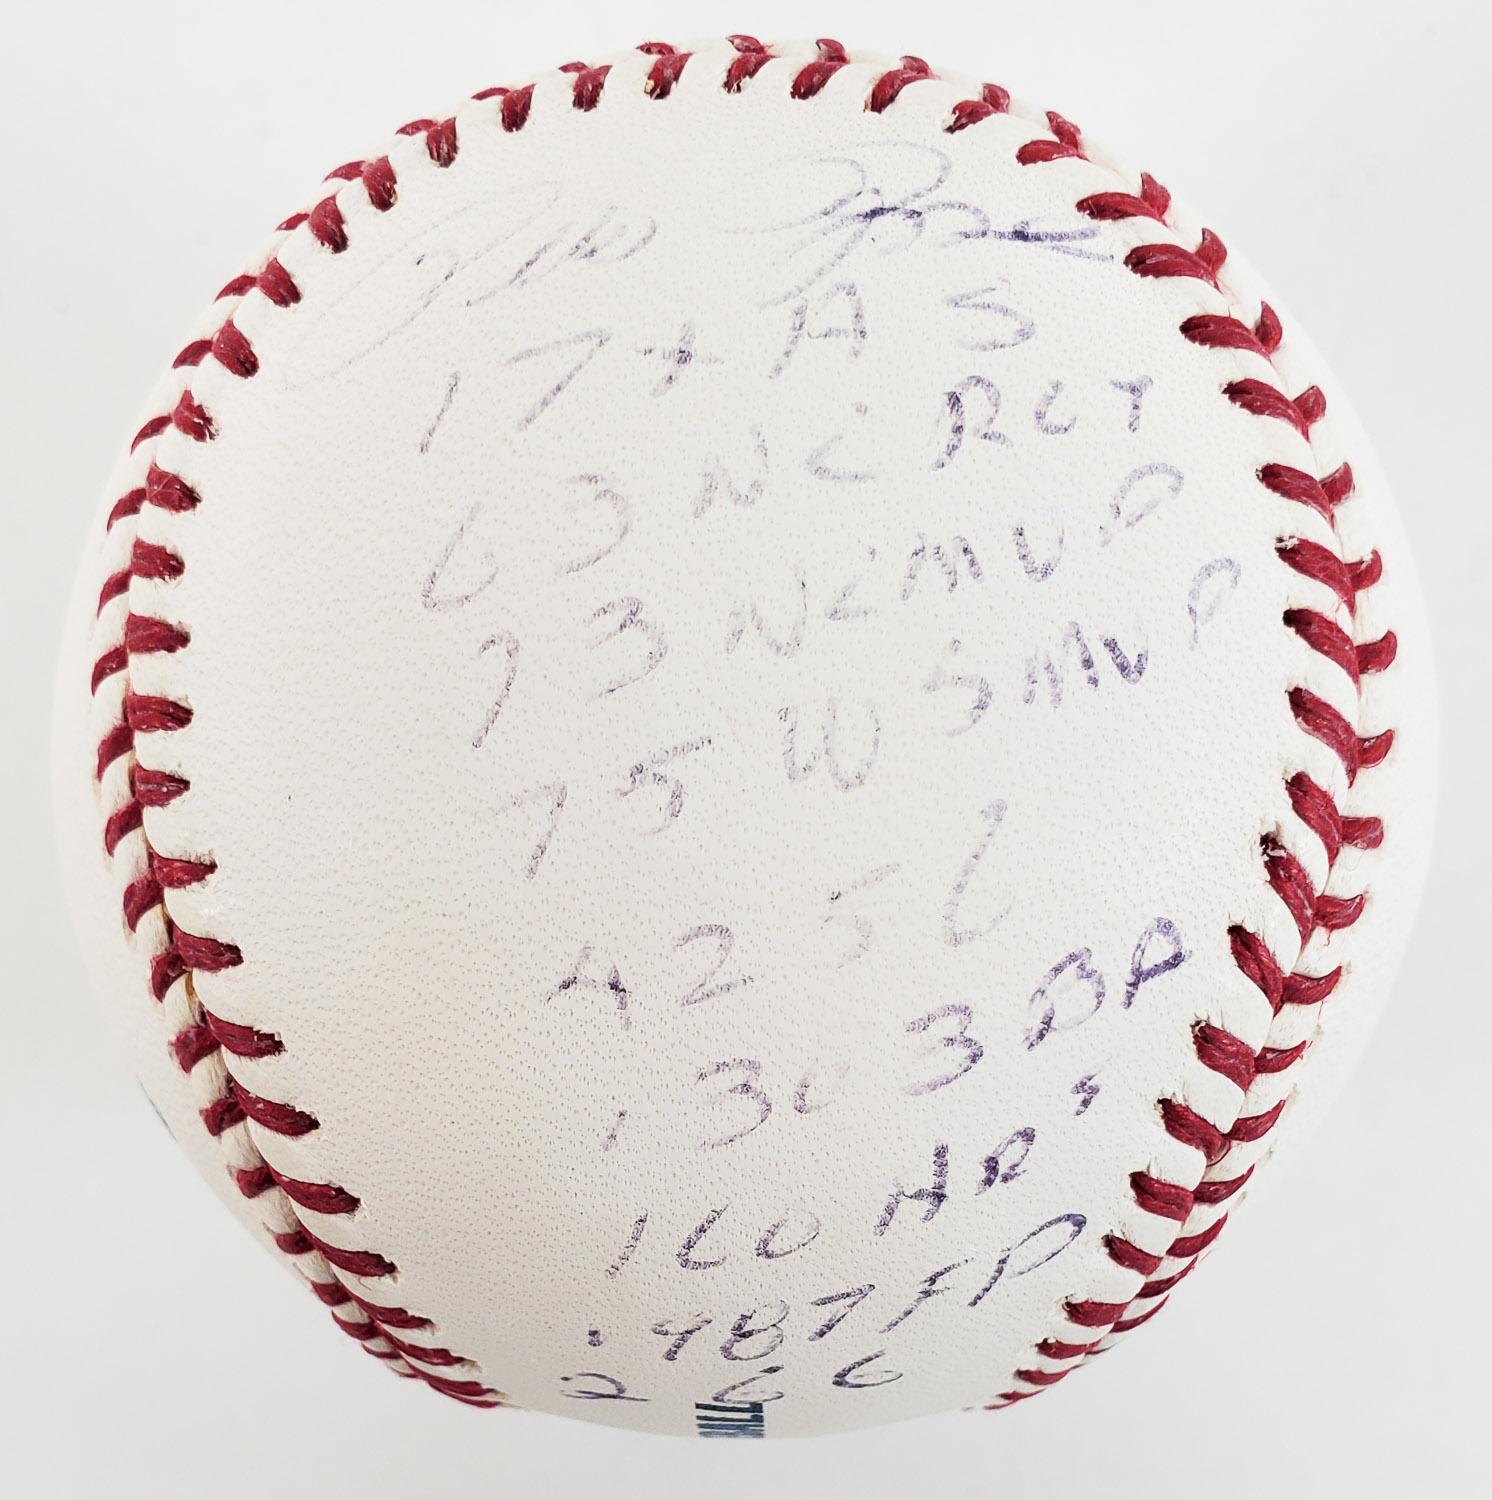 Pete Rose
17x AS
63 NL ROY
73 NL MVP
75 WS MVP
4256
.303 BA
160 HR's
.987 FP